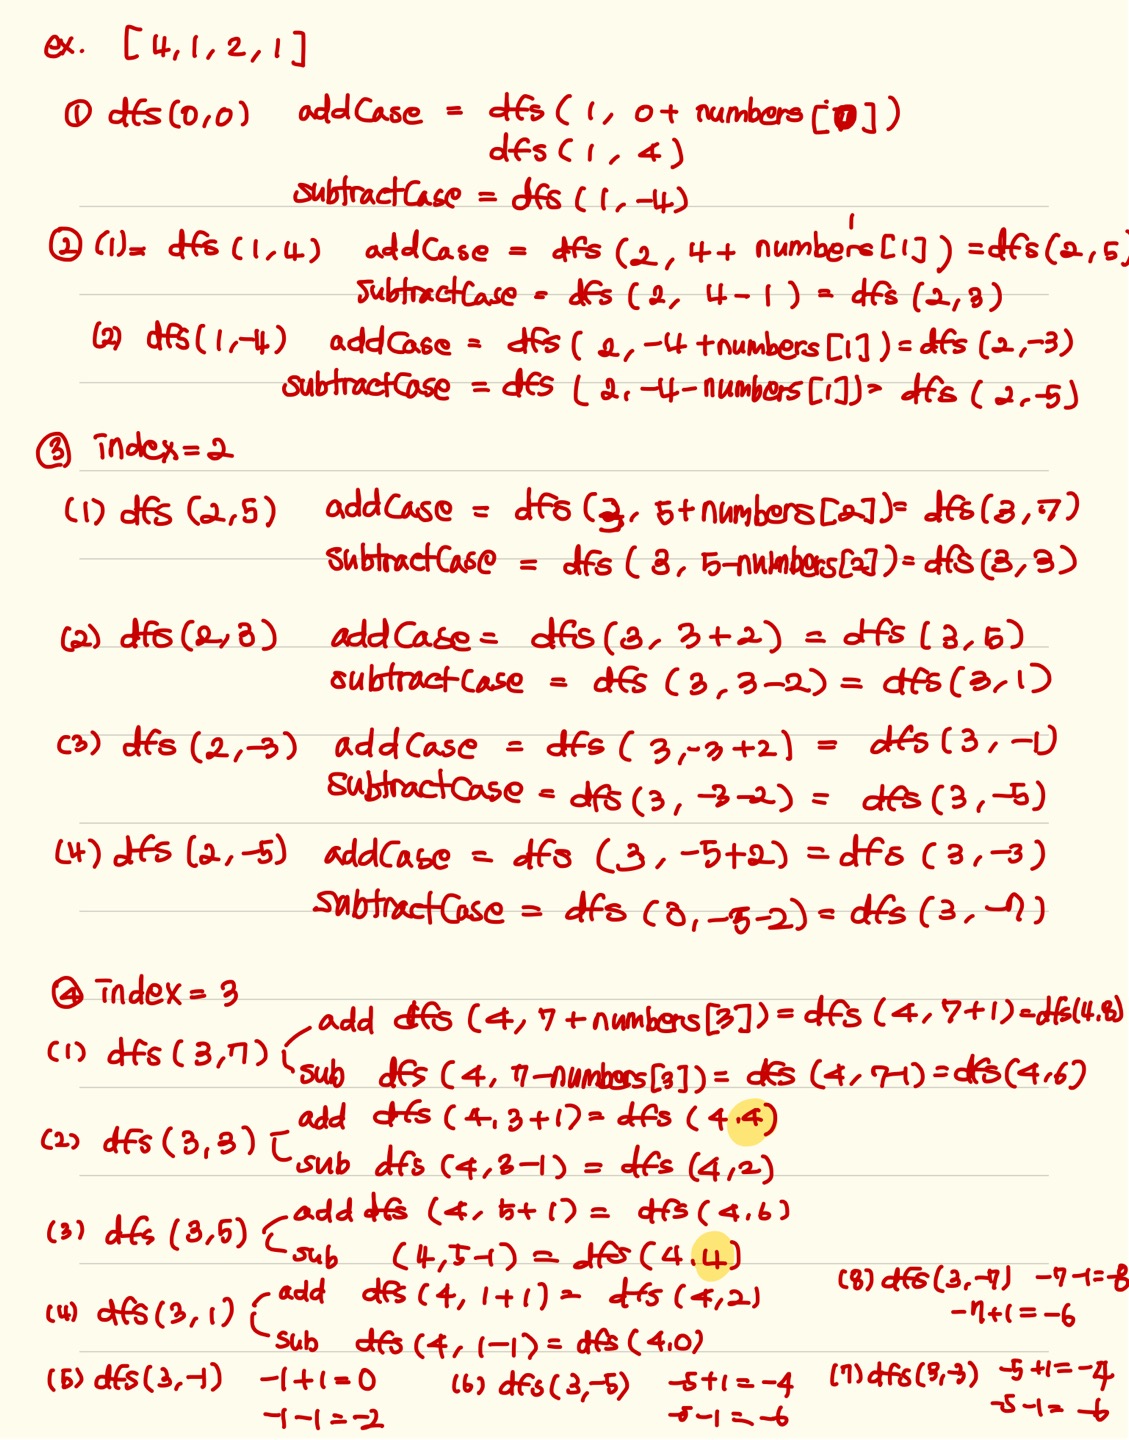 ex. [4,1,2,1]
① dfs(0,0) addCase = dfs(1, 0+ numbers[0])
dfs(1, 4)
subtractCase = dfs(1,-4)
1
② (1)= dfs(1,4) addCase = dfs(2, 4+ numbers[1]) = dfs(2,5)
subtractCase = dfs(2, 4-1) = dfs(2,3)
(2) dfs(1,-4) addCase = dfs(2,-4+numbers[1]) = dfs(2,-3)
subtractCase = dfs(2,-4-numbers[1]) = dfs(2,-5)
③ index=2
(1) dfs(2,5) addCase = dfs(3, 5+numbers[2]) = dfs(3,7)
subtractCase = dfs(3, 5-numbers[2]) = dfs(3,3)
(2) dfs(2,3) addCase = dfs(3, 3+2) = dfs(3,5)
subtractCase = dfs(3,3-2) = dfs(3,1)
(3) dfs(2,-3) addCase = dfs(3,-3+2) = dfs(3,-1)
subtractCase = dfs(3,-3-2) = dfs(3,-5)
(4) dfs(2,-5) addCase = dfs(3,-5+2) = dfs(3,-3)
subtractCase = dfs(3,-5-2) = dfs(3,-7)
④ index=3
add dfs(4, 7+numbers[3]) = dfs(4, 7+1) = dfs(4.8)
(1) dfs(3,7)
sub dfs(4, 7-numbers[3]) = dfs(4, 7-1) = dfs(4,6)
add dfs(4,3+1) = dfs(4.4)
(2) dfs(3,3)
sub dfs(4,3-1) = dfs(4,2)
add dfs(4, 5+1) = dfs(4.6)
(3) dfs(3,5)
sub (4,5-1) = dfs(4.4)
add dfs(4, 1+1) = dfs(4,2)
(4) dfs(3,1)
sub dfs(4, 1-1) = dfs(4.0)
(8) dfs(3,-7) -7-1=-8
-7+1=-6
(5) dfs(3,-1) -1+1=0
-1-1=-2
(6) dfs(3,-5) -5+1=-4
-5-1=-6
(7) dfs(3,-3) -5+1=-4
-5-1=-6